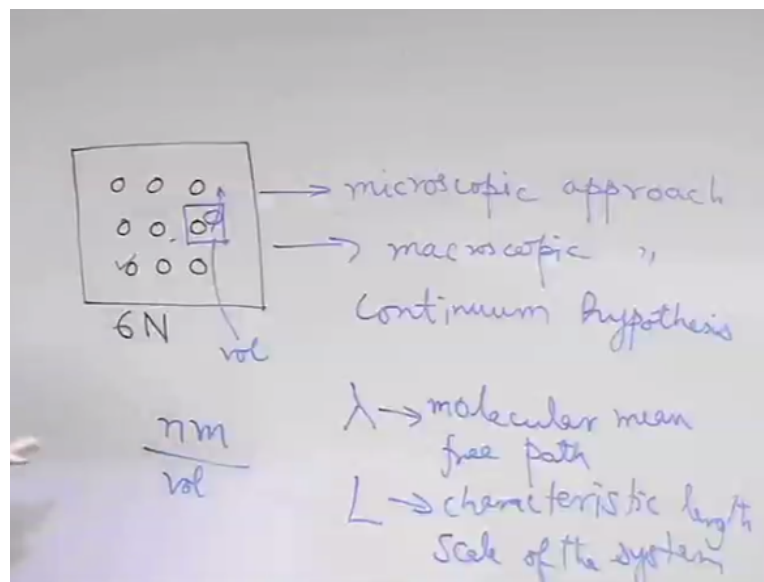 microscopic approach
macroscopic "
continuum hypothesis
6N
vol
nm
vol
λ → molecular mean
free path
L → characteristic length
scale of the system